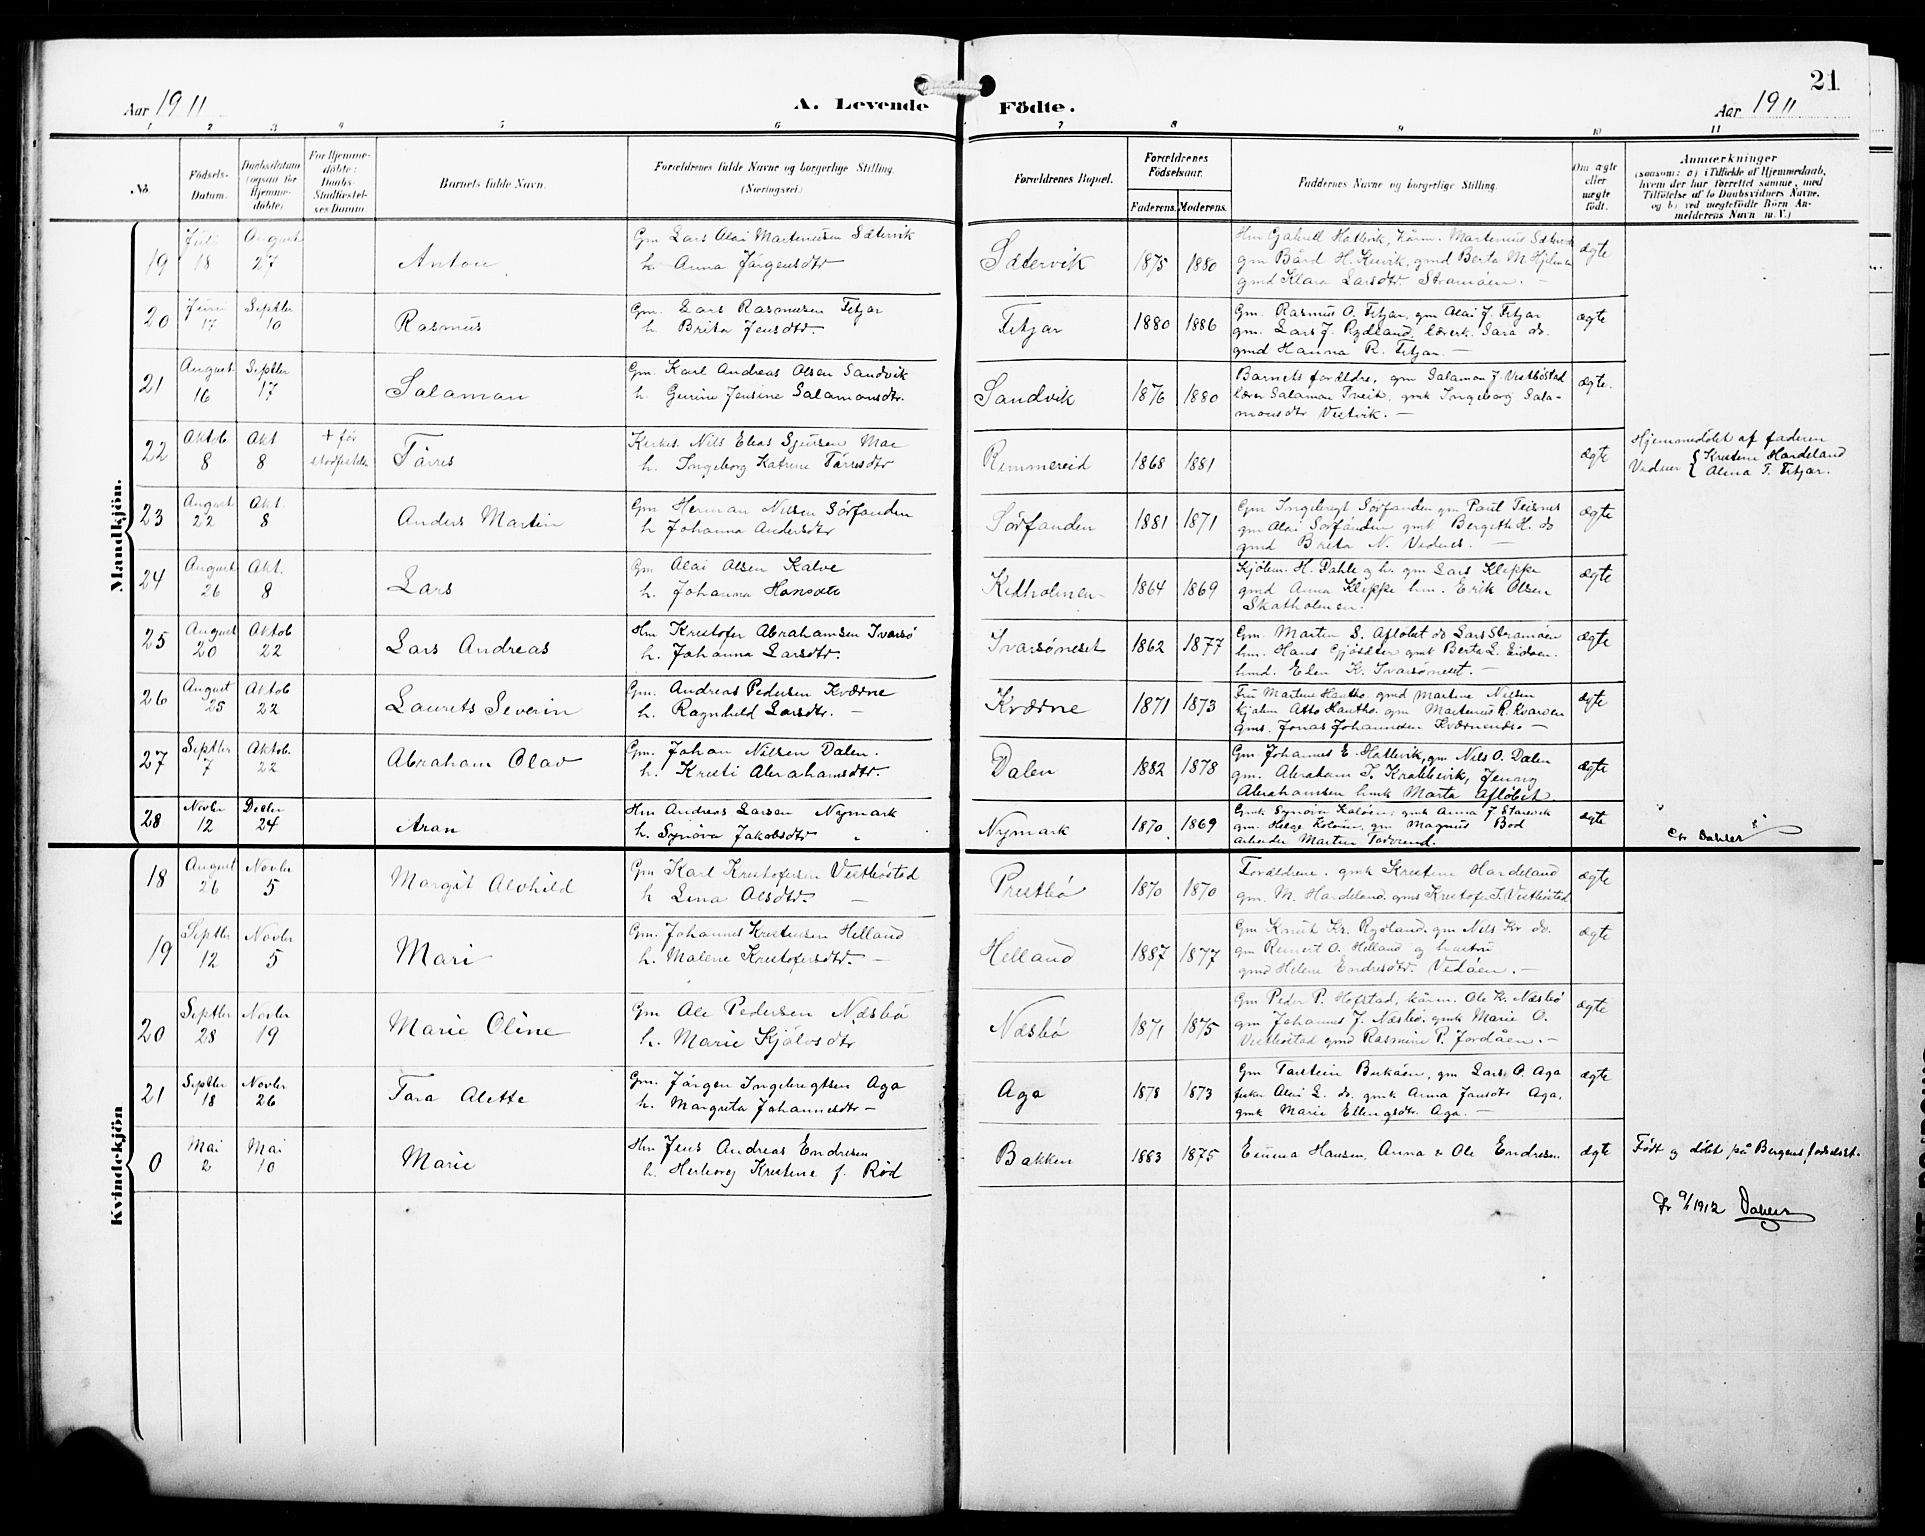 21
Aar 1911
A. Levende
Födte.
Aar 1911
1 2 3 4 5 6 7 8 9 10 11
No.
Födsels-
Datum.
Daabsdatum
(ogsaa for
Hjemme-
döbte)
For Hjemme-
döbte:
Daabs-
Stadfæstel-
ses Datum.
Barnets fulde Navn.
Forældrenes fulde Navne og borgerlige Stilling.
(Næringsvei.)
Forældrenes Bopæl.
Forældrenes
Födselsaar.
Faderens.
Moderens.
Faddernes Navne og borgerlige Stilling.
Om ægte
eller
uægte
födt.
Anmærkninger
(saasom: a) i Tilfælde af Hjemmedaab,
hvem der har forrettet samme, med
Tilföielse af to Daabsvidners Navne,
og b) ved uægtefödte Börn An-
melderens Navn m. V.)
Mandkjön.
19 Juli 18 August 27 Anton
Gm Lars Alai Martenusen Sætervik
h. Anna Jørgensdtr
Sætervik 1875 1880
Hm Gabriell Hattevik, Kårm. Martenius Sætervik
gm Bård H. Kuvik, gmd Berta M Hjelmen
gmd Klara Larsdtr. Stramøen. –
ægte
20 Juni 17 Septbr 10 Rasmus
Gm. Lars Rasmusen Fitjar
h. Brita Jensdtr.
Fitjar 1880 1886
Gm. Rasmus O. Fitjar, gm Alai J. Fitjar
gm. Lars J. Rydland, lærerk. Sara do.
gmd Hanna R. Fitjar. –
ægte
21 August 16 Septbr 17 Salaman
Gm. Karl Andreas Olsen Sandvik
h. Gurine Jensine Salamonsdtr.
Sandvik 1876 1880
Barnets forældre, gm Salamon J. Vestbøstad
lærer Salamon Tveit, gmk Ingeborg Sala-
monsdtr Vestvik. –
ægte.
22 Aktb 8 Akt 8 + før stadfestels. Tørres
Kirkes. Nils Elias Sjursen Mæ
h. Ingeborg Katrine Tørresdtr
Rimmereid 1868 1881
ægte
Hjemmedøbt af faderen
Vidner { Kristine Hardeland
Alina T. Fitjar.
23 August 22 Akt. 8 Anders Martin
Gm Herman Nilsen Sørfanden
h. Johanna Andersdtr
Sørfanden 1881 1871
Gm Ingebregt Sørfanden gm Paul Teisnes
gm Alai Sørfanden gmk Bergith H. do
gmd Brita N. Vednes. –
ægte
24 August 26 Akt. 8 Lars
Gm Alai Olsen Kalve
h. Johanna Hansdtr
Kidholmen 1864 1869
Kjøbm. H. Dahle og h. gm Lars Kleppe
gmd Anna Kleppe hm. Erik Olsen
Skatholmen.
ægte
25 August 20 Aktob 22 Lars Andreas
Hm Kristofer Abrahamsen Ivarsø
h. Johanna Larsdtr.
Ivarsøneset 1862 1877
Gm. Martin S. Afløbet do Lars Stramøen
hm. Hans Gjøsæter gmk Berta L. Eidøen.
hmd. Elen K. Ivarsøneset. –
ægte
26 August 25 Aktob 22 Laurets Severin
Gm. Andreas Pedersen Kværne
h. Ragnhild Larsdtr. –
Kværne 1871 1873
Fru Martine Hautho. gmd Martine Nilsen
hjalm Atto Hautho. gm Martenius R. Kvarven
gms. Jonas Johannden Kværnenes –
ægte
27 Septbr 7 Aktob. 22 Abraham Olav
Gm. Johan Nilsen Dalen.
h. Kristi Abrahamsdtr.
Dalen 1882 1878
Gm Johannes E. Hattevik, gm Nils O. Dalen
gm. Abraham I. Krabbevik, Jenny
Abrahamsen hmk Marta Afløbet.
ægte
28 Novbr 12 Decbr 24 Aran
Hm Andreas Larsen Nymark
h. Synøva Jakobsdtr
Nymark 1870. 1869
Gmk Synøva Kaløen, gmk Anna J Starevik
gm. Helge Koløen, gm Magnus Bod
arbeider Martin
ægte
Chr Dahler
Kvindekjön
18 August 26 Novbr 5 Margit Alvhild
Gm Karl Kristofersen Vestbøstad
h Lina Olsdtr. –
Prestbø 1870 1870
Forældrene. gmk Kristine Hardeland
gm. M. Hardeland. gms Kristofer J. Vestbøstad
ægte
19 Septbr 12 Novbr 5 Mari
Gm. Johannes Kristensen Helland
h. Malene Kristofersdtr. –
Helland 1887 1877
Gm Knut Kr. Rydland. gm Nils Kr. do.
gm Reinert O. Helland og hustru
gmd Helene Endresdtr. Vedøen. –
ægte
20 Septbr 28 Novbr 19 Marie Oline
Gm Ole Pedersen Næsbø
h. Marie Kjølvsdtr
Næsbø 1871 1875
Gm Peder P. Hofstad, kårm. Ole K. Næsbø
gm Johannes J. Næsbø. gmk Marie O.
Vestbøstad gmd Rasmine P. Jordåen. –
ægte
21 Septbr 18 Novbr 26 Tara Alette
Gm. Jørgen Ingebregtsen Aga
h. Margreta Johannesdtr –
Aga 1878 1873
Gm Torstein Birkåen, gm Lars O. Aga
fisker Alai L. do. gmk Anna Jansdtr Aga.
gmk Marie Ellingsdtr. Aga. –
ægte
0 Mai 2 Mai 10 Marie
Hm Jens Andreas Endresen
h. Herborg Kristine f. Rød
Bakken 1883 1875
Emma Hansen, Anna & Ole Endresen.
ægte
Født og døbt på Bergens fødselsst.
9/1 1912 Dahler